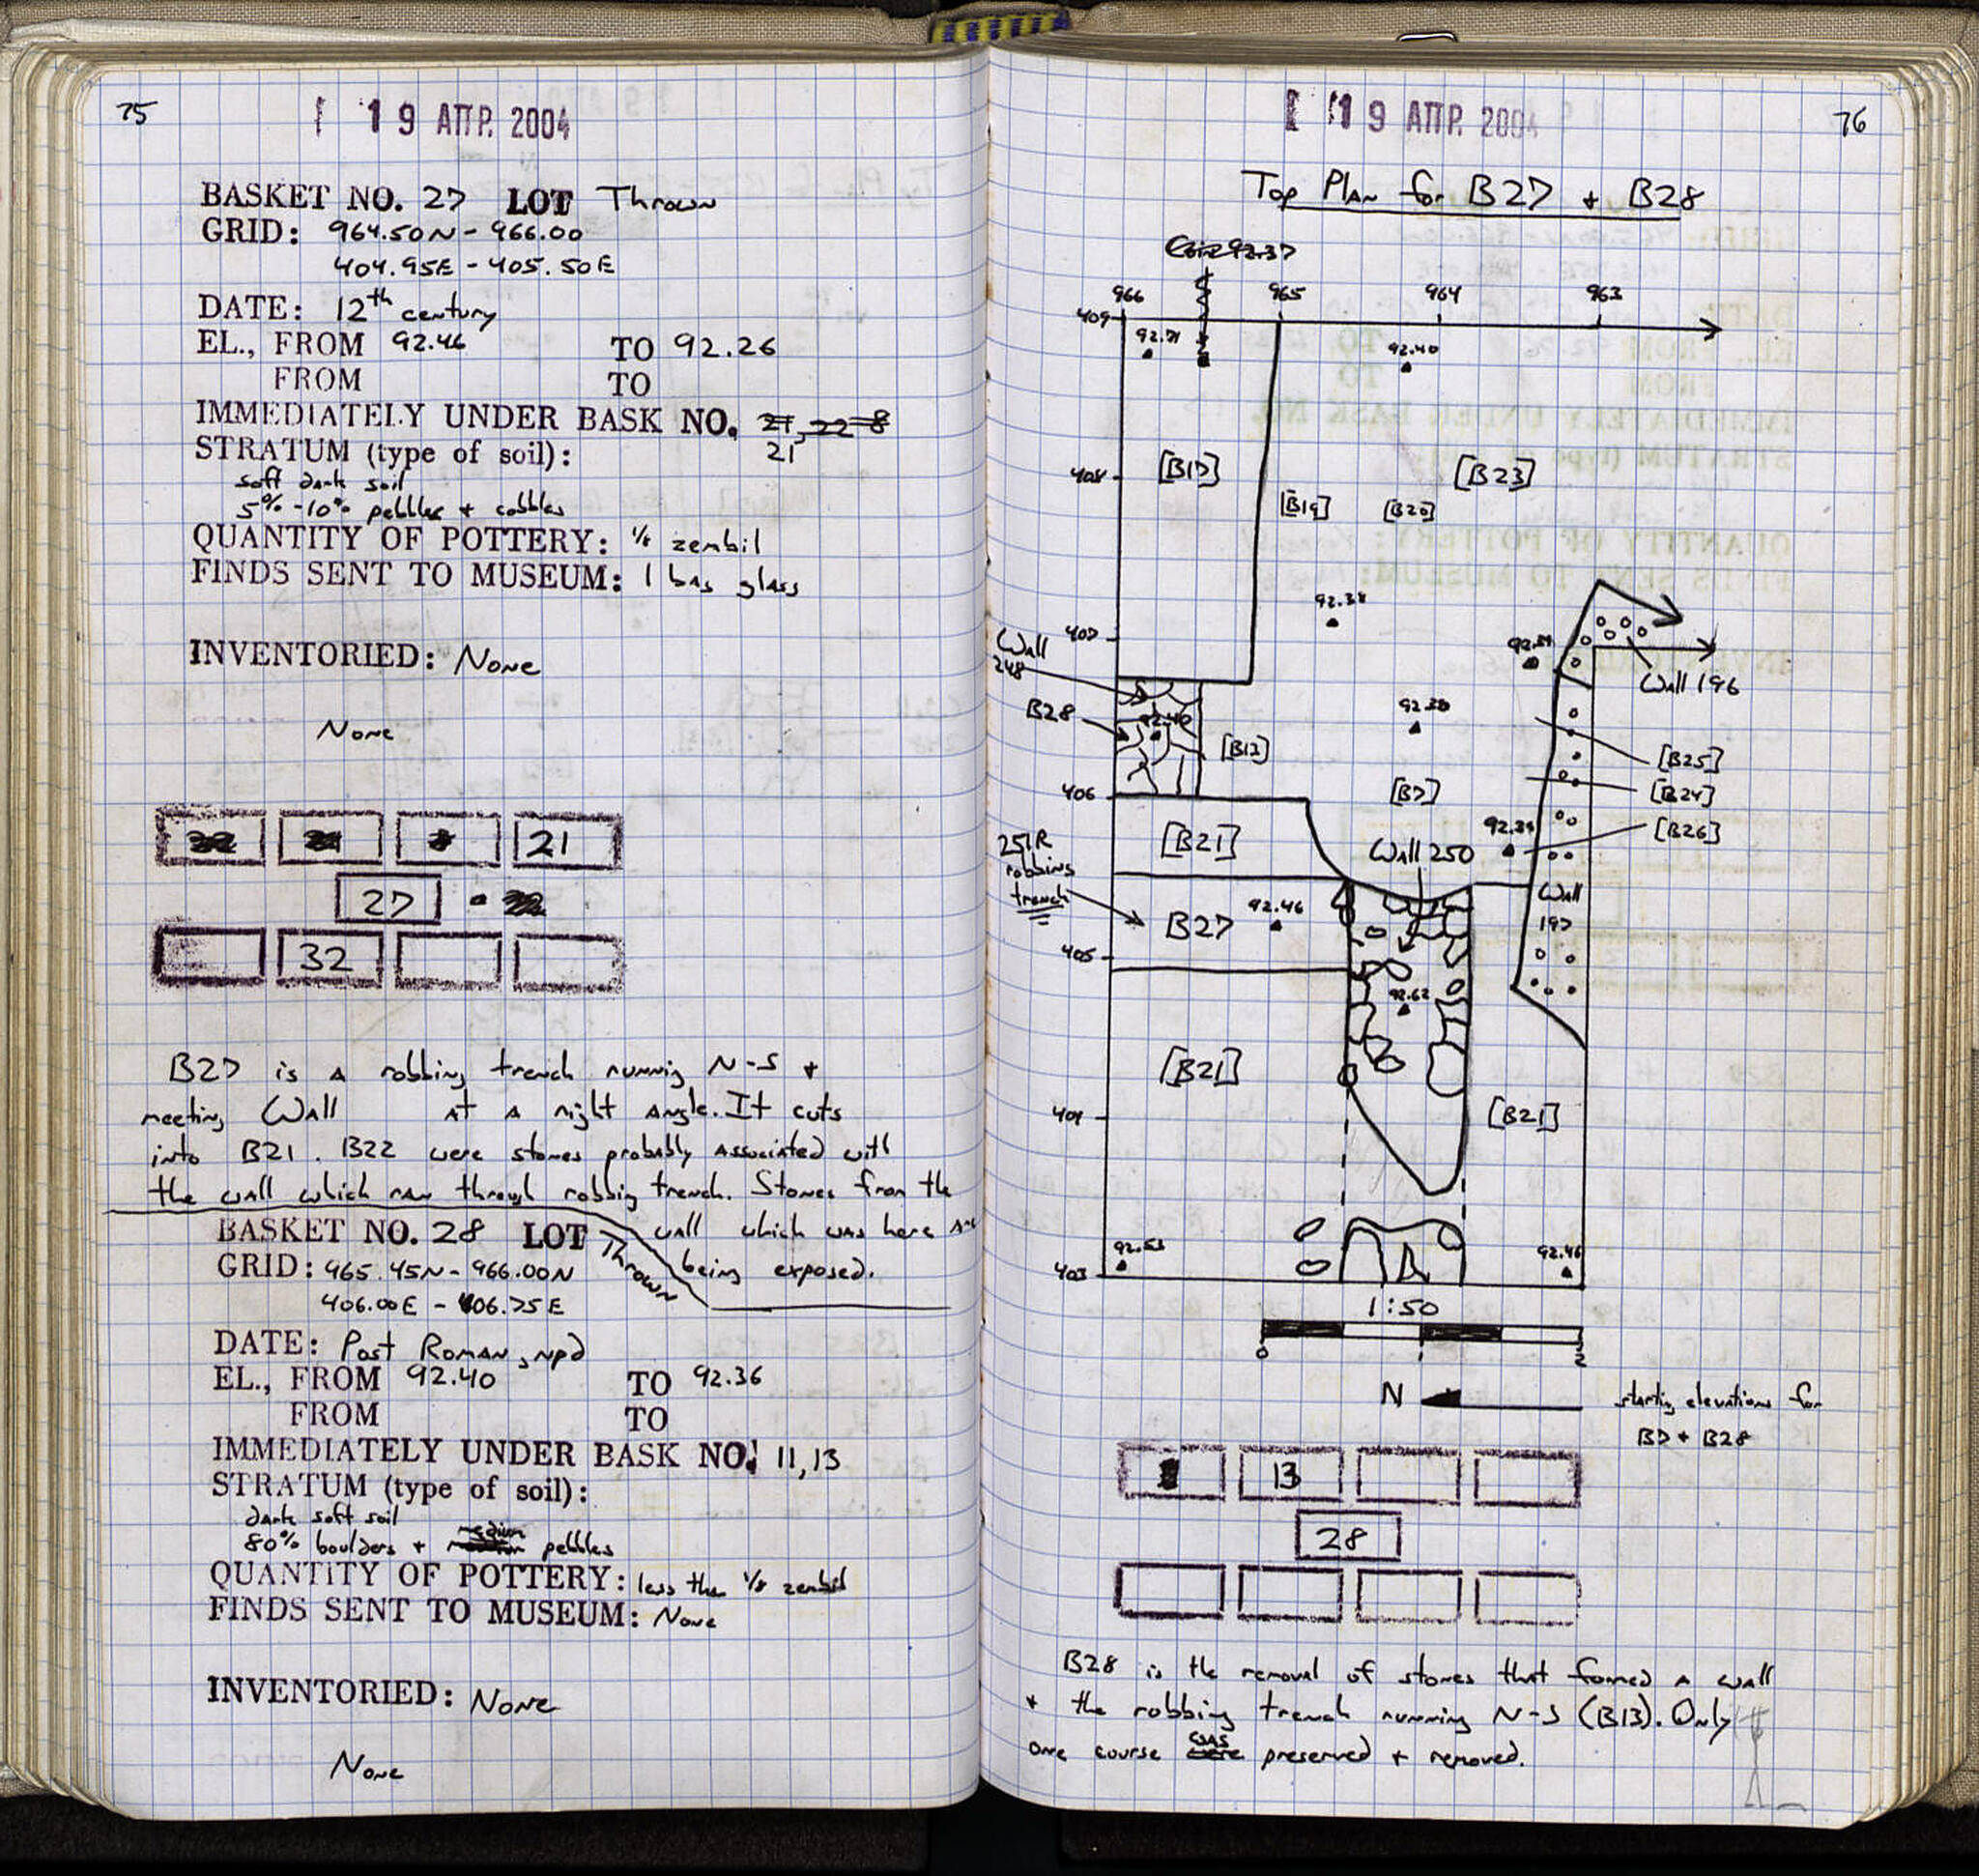 75
19 ΑΠΡ. 2004
BASKET NO. 27 LOT Thrown
GRID: 964.50N - 966.00
404.95E - 405.50E
DATE: 12th century
EL., FROM 92.46 TO 92.26
FROM TO
IMMEDIATELY UNDER BASK NO. 21, 22 8
21
STRATUM (type of soil):
soft dark soil
5% - 10% pebbles + cobbles
QUANTITY OF POTTERY: 1/8 zembil
FINDS SENT TO MUSEUM: 1 bag glass
INVENTORIED: None
None
21
27
32
B27 is a robbing trench running N-S +
meeting Wall at a right angle. It cuts
into B21. B22 were stones probably associated with
the wall which ran through robbing trench. Stones from the
wall which was here are
being exposed.
BASKET NO. 28 LOT Thrown
GRID: 965.45N - 966.00N
406.00E - 406.75E
DATE: Post Roman, npd
EL., FROM 92.40 TO 92.36
FROM TO
IMMEDIATELY UNDER BASK NO. 11, 13
STRATUM (type of soil):
dark soft soil
80% boulders + medium pebbles
QUANTITY OF POTTERY: less the 1/8 zembil
FINDS SENT TO MUSEUM: None
INVENTORIED: None
None
19 ΑΠΡ. 2004
76
Top Plan for B27 + B28
Coin 92.37
966 965 964 963
409
92.71
92.40
408
[B17]
[B19]
[B20]
[B23]
92.38
407
Wall
248
92.51
Wall 196
B28
92.40
[B12]
92.38
[B25]
406
[B7]
[B24]
[B26]
251R
robbing
trench
[B21]
Wall 250
Wall
197
B27
92.46
405
92.62
[B21]
404
[B21]
92.53
92.46
403
1:50
0 1 2
N
starting elevations for
B7 + B28
13
28
B28 is the removal of stones that formed a wall
+ the robbing trench running N-S (B13). Only
one course was were preserved + removed.